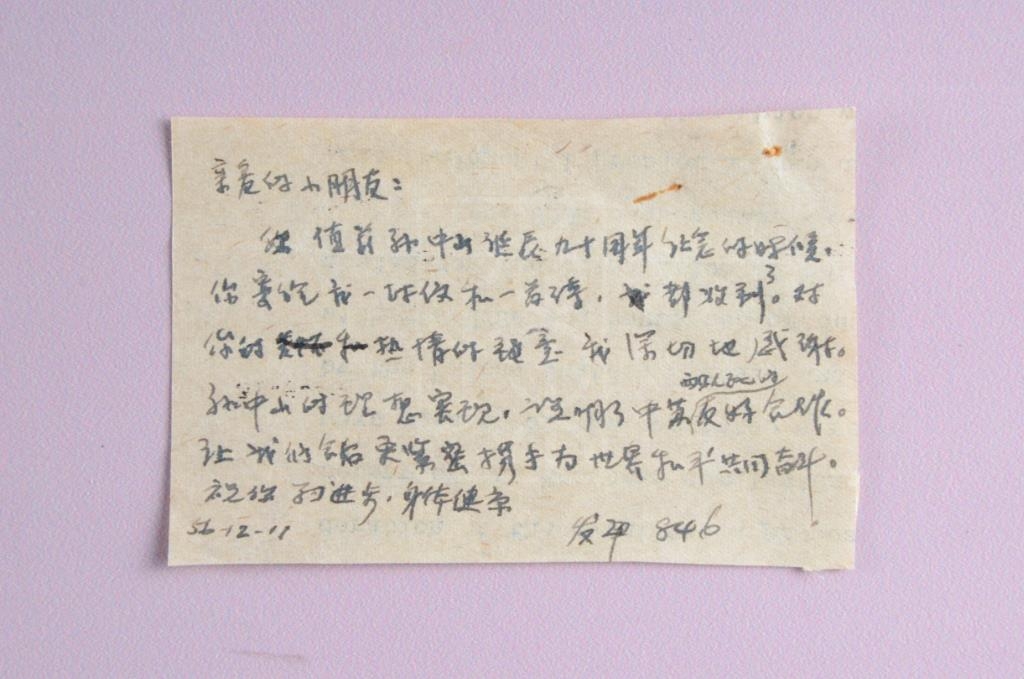 亲爱的小朋友：
值兹孙中山诞辰九十周年纪念的时候，
你寄给我一封信和一首诗，我都收到了。对
你的热情的 我深切地感谢。
孙中山的理想实现，说明了中苏友好合作。
让我们今后更紧密携手为世界和平共同奋斗。
祝你 进步，身体健康
56-12-11 发平 846